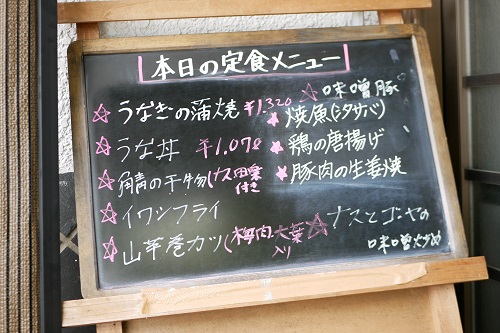 本日の定食メニュー
☆うなぎの蒲焼 ¥1.320
☆うな丼 ¥1.078
☆鯖の干物(ナス田楽付き
☆イワシフライ
☆山芋巻カツ(梅肉、大葉入り
☆味噌豚
★焼魚(シタサバ)
★鶏の唐揚げ
★豚肉の生姜焼
☆ナスとゴーヤの
味噌炒め